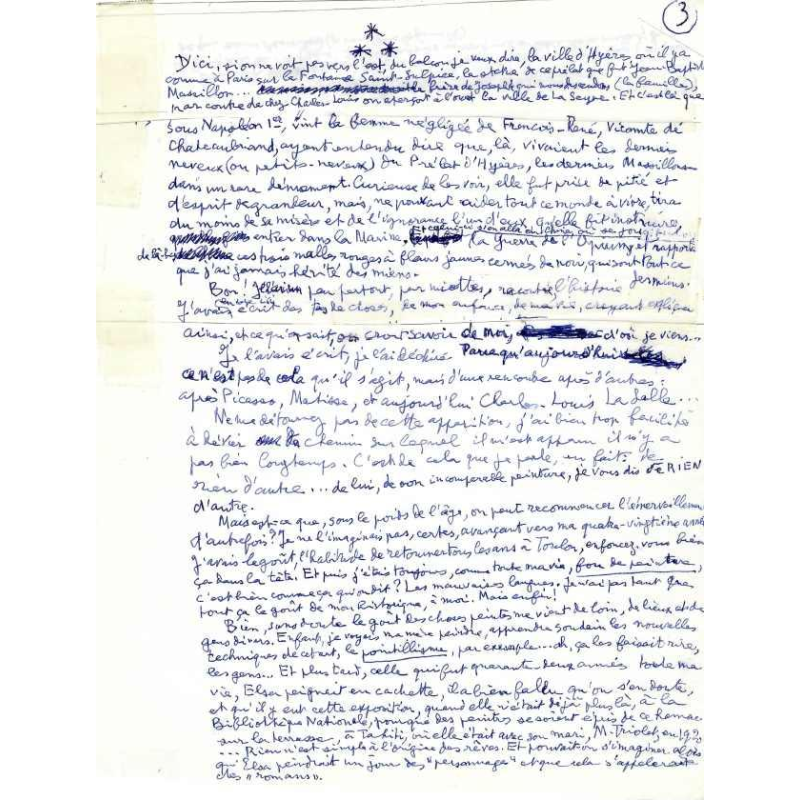 3
D'ici, si on ne voit pas vers l'est, du balcon je veux dire, la ville d'Hyères où il y a
comme à Paris sur la Fontaine Saint-Sulpice, la statue de ce prélat que fut Jean-Baptiste
Massillon... frère de Joseph qui nous descendons (la famille),
par contre de chez Charles-Louis on aperçoit à l'ouest la ville de La Seyne. Et c'est là que
sous Napoléon 1er, vint la femme négligée de François-René, Vicomte de
Chateaubriand, ayant entendu dire que, là, vivaient les derniers
neveux (ou petits-neveux) du Prélat d'Hyères, les derniers Massillons
dans un rare dénuement. Curieuse de les voir, elle fut prise de pitié et
d'esprit de grandeur, mais, ne pouvant aider tout ce monde à vivre, tira
du moins de sa misère et de l'ignorance l'un d'eux, qu'elle fit instruire,
entrer dans la Marine. la Guerre de l'Opium, et rapporta
de là-bas ces trois malles rouges à fleurs jaunes cernées de noir, qui sont tout ce
que j'ai jamais hérité des miens.
Bon! un peu partout, par miettes, raconté l'histoire des miens.
J'avais écrit des tas de choses, de mon enfance, de ma vie, croyant expliquer
ainsi, et ce qu'on sait, croit savoir de moi, d'où je viens...
Je l'avais écrit, je l'ai déchiré. Parce qu'aujourd'hui
ce n'est pas de cela qu'il s'agit, mais d'une rencontre après d'autres:
après Picasso, Matisse, et aujourd'hui Charles-Louis La Salle...
Ne me détournez pas de cette apparition, j'ai bien trop facilité
à dévier du chemin sur lequel il m'est apparu il n'y a
pas bien longtemps. C'est de cela que je parle, en fait: de
rien d'autre... de lui, de son incomparable peinture, je vous dis de RIEN
d'autre.
Mais est-ce que, sous le poids de l'âge, on peut recommencer l'émerveillement
d'autrefois? Je ne l'imaginais pas, certes, avançant vers ma quatre-vingtième année
J'avais le goût, l'habitude de retourner tous les ans à Toulon, enfoncez-vous bien
ça dans la tête! Et puis j'étais toujours, comme toute ma vie, fou de peinture,
c'est bien comme ça qu'on dit? Les mauvaises langues. Je n'ai pas tant que
tout ça le goût de mon historique, à moi. Mais enfin!
Bien, sans doute le goût des choses peintes me vient de loin, de lieux et de
gens divers. Enfant, je voyais ma mère peindre, apprendre soudain les nouvelles
techniques de cet art, le pointillisme, par exemple... ah, ça les faisait rire,
les gens... Et plus tard, celle qui fut quarante-deux années toute ma
vie, Elsa peignait en cachette, il a bien fallu qu'on s'en doute,
et qu'il y eut cette exposition, quand elle n'était déjà plus là, à la
Bibliothèque Nationale, pour que des peintres se soient épris de ce hamac
sur la terrasse, à Tahiti, où elle était avec son mari, M. Triolet, en 192
... Rien n'est simple à l'origine des rêves. Et pouvait-on s'imaginer alors
qu'Elsa peindrait un jour des "personnages" et que cela s'appellerait
des "romans".